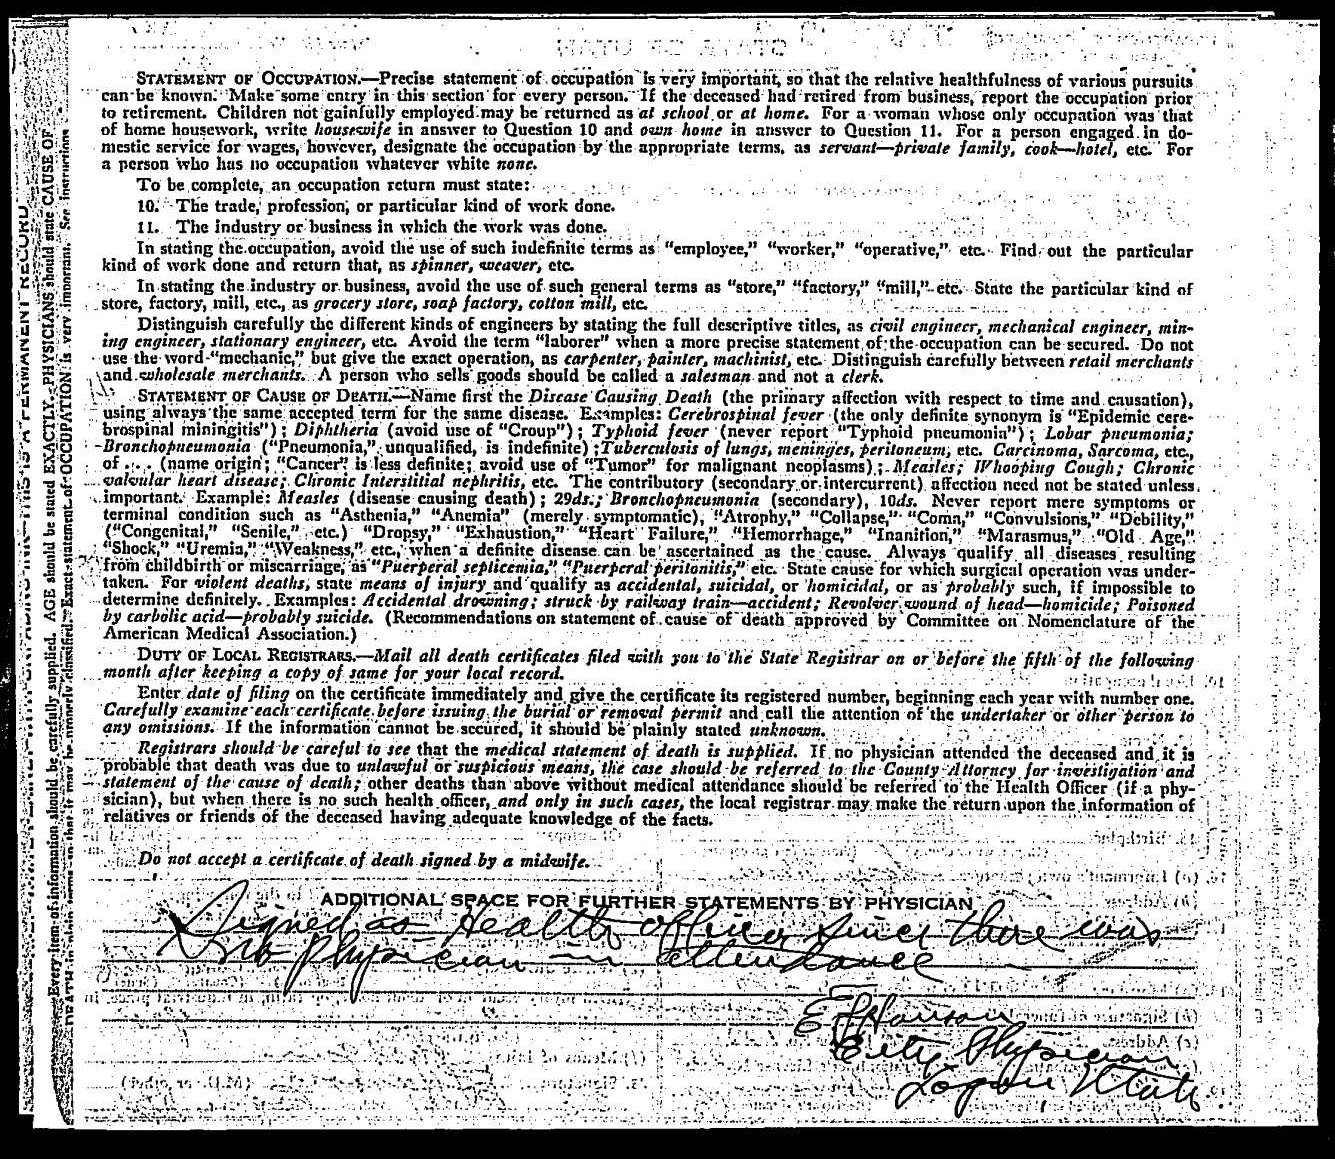 STATEMENT OF OCCUPATION.—Precise statement of occupation is very important, so that the relative healthfulness of various pursuits
can be known. Make some entry in this section for every person. If the deceased had retired from business, report the occupation prior
to retirement. Children not gainfully employed may be returned as at school or at home. For a woman whose only occupation was that
of home housework, write housewife in answer to Question 10 and own home in answer to Question 11. For a person engaged in do-
mestic service for wages, however, designate the occupation by the appropriate terms, as servant—private family, cook—hotel, etc. For
a person who has no occupation whatever white none.
To be complete, an occupation return must state:
10. The trade, profession, or particular kind of work done.
11. The industry or business in which the work was done.
In stating the occupation, avoid the use of such indefinite terms as "employee," "worker," "operative," etc. Find out the particular
kind of work done and return that, as spinner, weaver, etc.
In stating the industry or business, avoid the use of such general terms as "store," "factory," "mill," etc. State the particular kind of
store, factory, mill, etc., as grocery store, soap factory, cotton mill, etc.
Distinguish carefully the different kinds of engineers by stating the full descriptive titles, as civil engineer, mechanical engineer, min-
ing engineer, stationary engineer, etc. Avoid the term "laborer" when a more precise statement of the occupation can be secured. Do not
use the word "mechanic," but give the exact operation, as carpenter, painter, machinist, etc. Distinguish carefully between retail merchants
and wholesale merchants. A person who sells goods should be called a salesman and not a clerk.
STATEMENT OF CAUSE OF DEATH.—Name first the Disease Causing Death (the primary affection with respect to time and causation),
using always the same accepted term for the same disease. Examples: Cerebrospinal fever (the only definite synonym is "Epidemic cere-
brospinal miningitis"); Diphtheria (avoid use of "Croup"); Typhoid fever (never report "Typhoid pneumonia"); Lobar pneumonia;
Bronchopneumonia ("Pneumonia," unqualified, is indefinite); Tuberculosis of lungs, meninges, peritoneum, etc. Carcinoma, Sarcoma, etc.,
of ... (name origin; "Cancer" is less definite; avoid use of "Tumor" for malignant neoplasms); Measles; Whooping Cough; Chronic
valvular heart disease; Chronic Interstitial nephritis, etc. The contributory (secondary or intercurrent) affection need not be stated unless
important. Example: Measles (disease causing death); 29ds.; Bronchopneumonia (secondary), 10ds. Never report mere symptoms or
terminal condition such as "Asthenia," "Anemia" (merely symptomatic), "Atrophy," "Collapse," "Coma," "Convulsions," "Debility,"
("Congenital," "Senile," etc.) "Dropsy," "Exhaustion," "Heart Failure," "Hemorrhage," "Inanition," "Marasmus," "Old Age,"
"Shock," "Uremia," "Weakness," etc., when a definite disease can be ascertained as the cause. Always qualify all diseases resulting
from childbirth or miscarriage, as "Puerperal septicemia," "Puerperal peritonitis," etc. State cause for which surgical operation was under-
taken. For violent deaths, state means of injury and qualify as accidental, suicidal, or homicidal, or as probably such, if impossible to
determine definitely. Examples: Accidental drowning; struck by railway train—accident; Revolver wound of head—homicide; Poisoned
by carbolic acid—probably suicide. (Recommendations on statement of cause of death approved by Committee on Nomenclature of the
American Medical Association.)
DUTY OF LOCAL REGISTRARS.—Mail all death certificates filed with you to the State Registrar on or before the fifth of the following
month after keeping a copy of same for your local record.
Enter date of filing on the certificate immediately and give the certificate its registered number, beginning each year with number one.
Carefully examine each certificate before issuing the burial or removal permit and call the attention of the undertaker or other person to
any omissions. If the information cannot be secured, it should be plainly stated unknown.
Registrars should be careful to see that the medical statement of death is supplied. If no physician attended the deceased and it is
probable that death was due to unlawful or suspicious means, the case should be referred to the County Attorney for investigation and
statement of the cause of death; other deaths than above without medical attendance should be referred to the Health Officer (if a phy-
sician), but when there is no such health officer, and only in such cases, the local registrar may make the return upon the information of
relatives or friends of the deceased having adequate knowledge of the facts.
Do not accept a certificate of death signed by a midwife.
ADDITIONAL SPACE FOR FURTHER STATEMENTS BY PHYSICIAN
Signed as Health officer since there was
no physician in attendance
Hanson
City Physician
Logan Utah
Every item of information should be carefully supplied. AGE should be stated EXACTLY. PHYSICIANS should state CAUSE OF
Exact statement of OCCUPATION is very important. See instructions